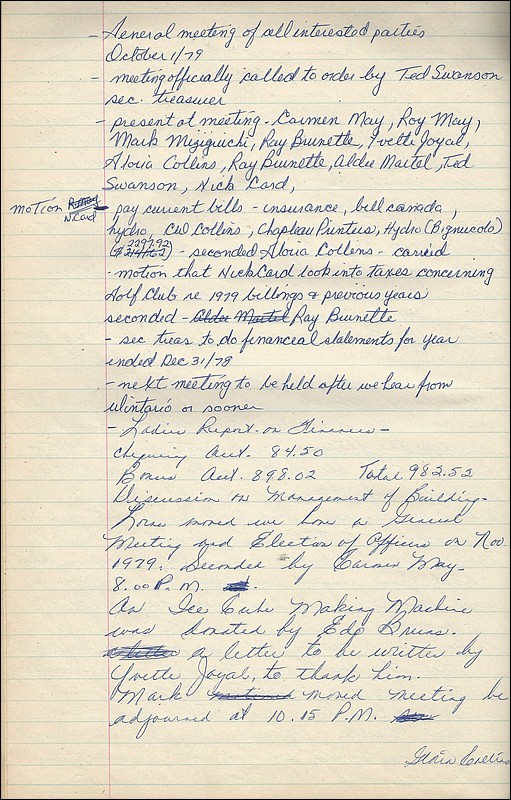 - General meeting of all interested parties
October 1/79
- meeting officially called to order by Ted Swanson
sec. treasurer
- present at meeting - Carmen May, Roy May,
Mark Miziguchi, Ray Brunette, Yvette Joyal,
Gloria Collins, Ray Brunette, Aldie Martel, Ted
Swanson, Nick Card,
motion R. May - pay current bills - insurance, bell canada,
N Card
hydro, Ced Collins, Chapleau Printers, Hydro (Bignucolo)
2297.92
($ ) - seconded Gloria Collins - carried
- motion that Nick Card look into taxes concerning
Golf Club re 1979 billings & previous years
seconded - Aldie Martel Ray Brunette
- sec treas. to do financial statements for year
ended Dec 31/78
- next meeting to be held after we hear from
wintario or sooner
- Ladies Report on Finances -
Chequing Acct. 84.50
Bonus Acct. 898.02 Total 982.52
Discussion on Management of Building -
Lorne moved we have a General
Meeting and Election of Officers on Nov
1979. Seconded by Carmen May -
8.00 P.M.
An Ice Cube Making Machine
was donated by Edo Bruns.
a letter to be written by
Yvette Joyal, to thank him.
Mark motioned moved meeting be
adjourned at 10.15 P.M.
Gloria Collins